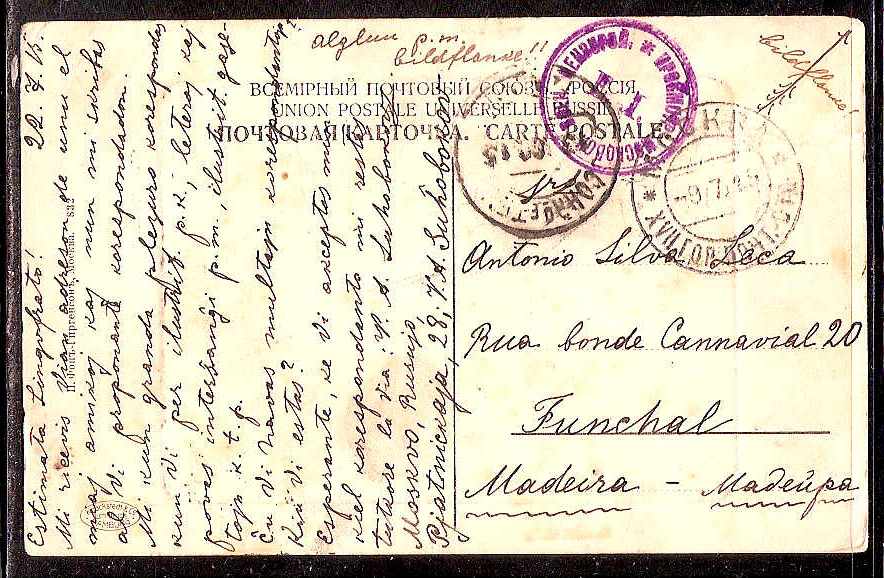 algluu p.m.
bildflanke!!
bildflanke!
ВСЕМІРНЫЙ ПОЧТОВЫЙ СОЮЗЪ. РОССІЯ.
UNION POSTALE UNIVERSELLE. RUSSIE.
ПОЧТОВАЯ КАРТОЧКА. CARTE POSTALE.
МОСКВА
1
Antonio Silva
Rua bonde Cannavial 20
Funchal
Madeira - Мадейра
Estimata Lingvofrato! 22.7.15.
Mi ricevis Vian adreson de unu el
miaj amikoj kaj nun mi skribas
al Vi proponante korespondadon.
Mi kun granda plezuro korespondos
kun Vi per ilustrit. p.k., leteroj kaj
povas interŝanĝi p.m., ilustrit. gaze-
tojn k. t. p.
Ĉu Vi havas multajn korespondantojn?
Kiu Vi estas?
Esperante, ke Vi akceptos min
kiel korespondanto mi restas
tutkore la Via: V. A. Suhobokov
Moskvo, Rusujo,
Pjatnickaja, 28; V. A. Suhobokov
П. Фонъ-Гиргенсонъ, Москва. 832